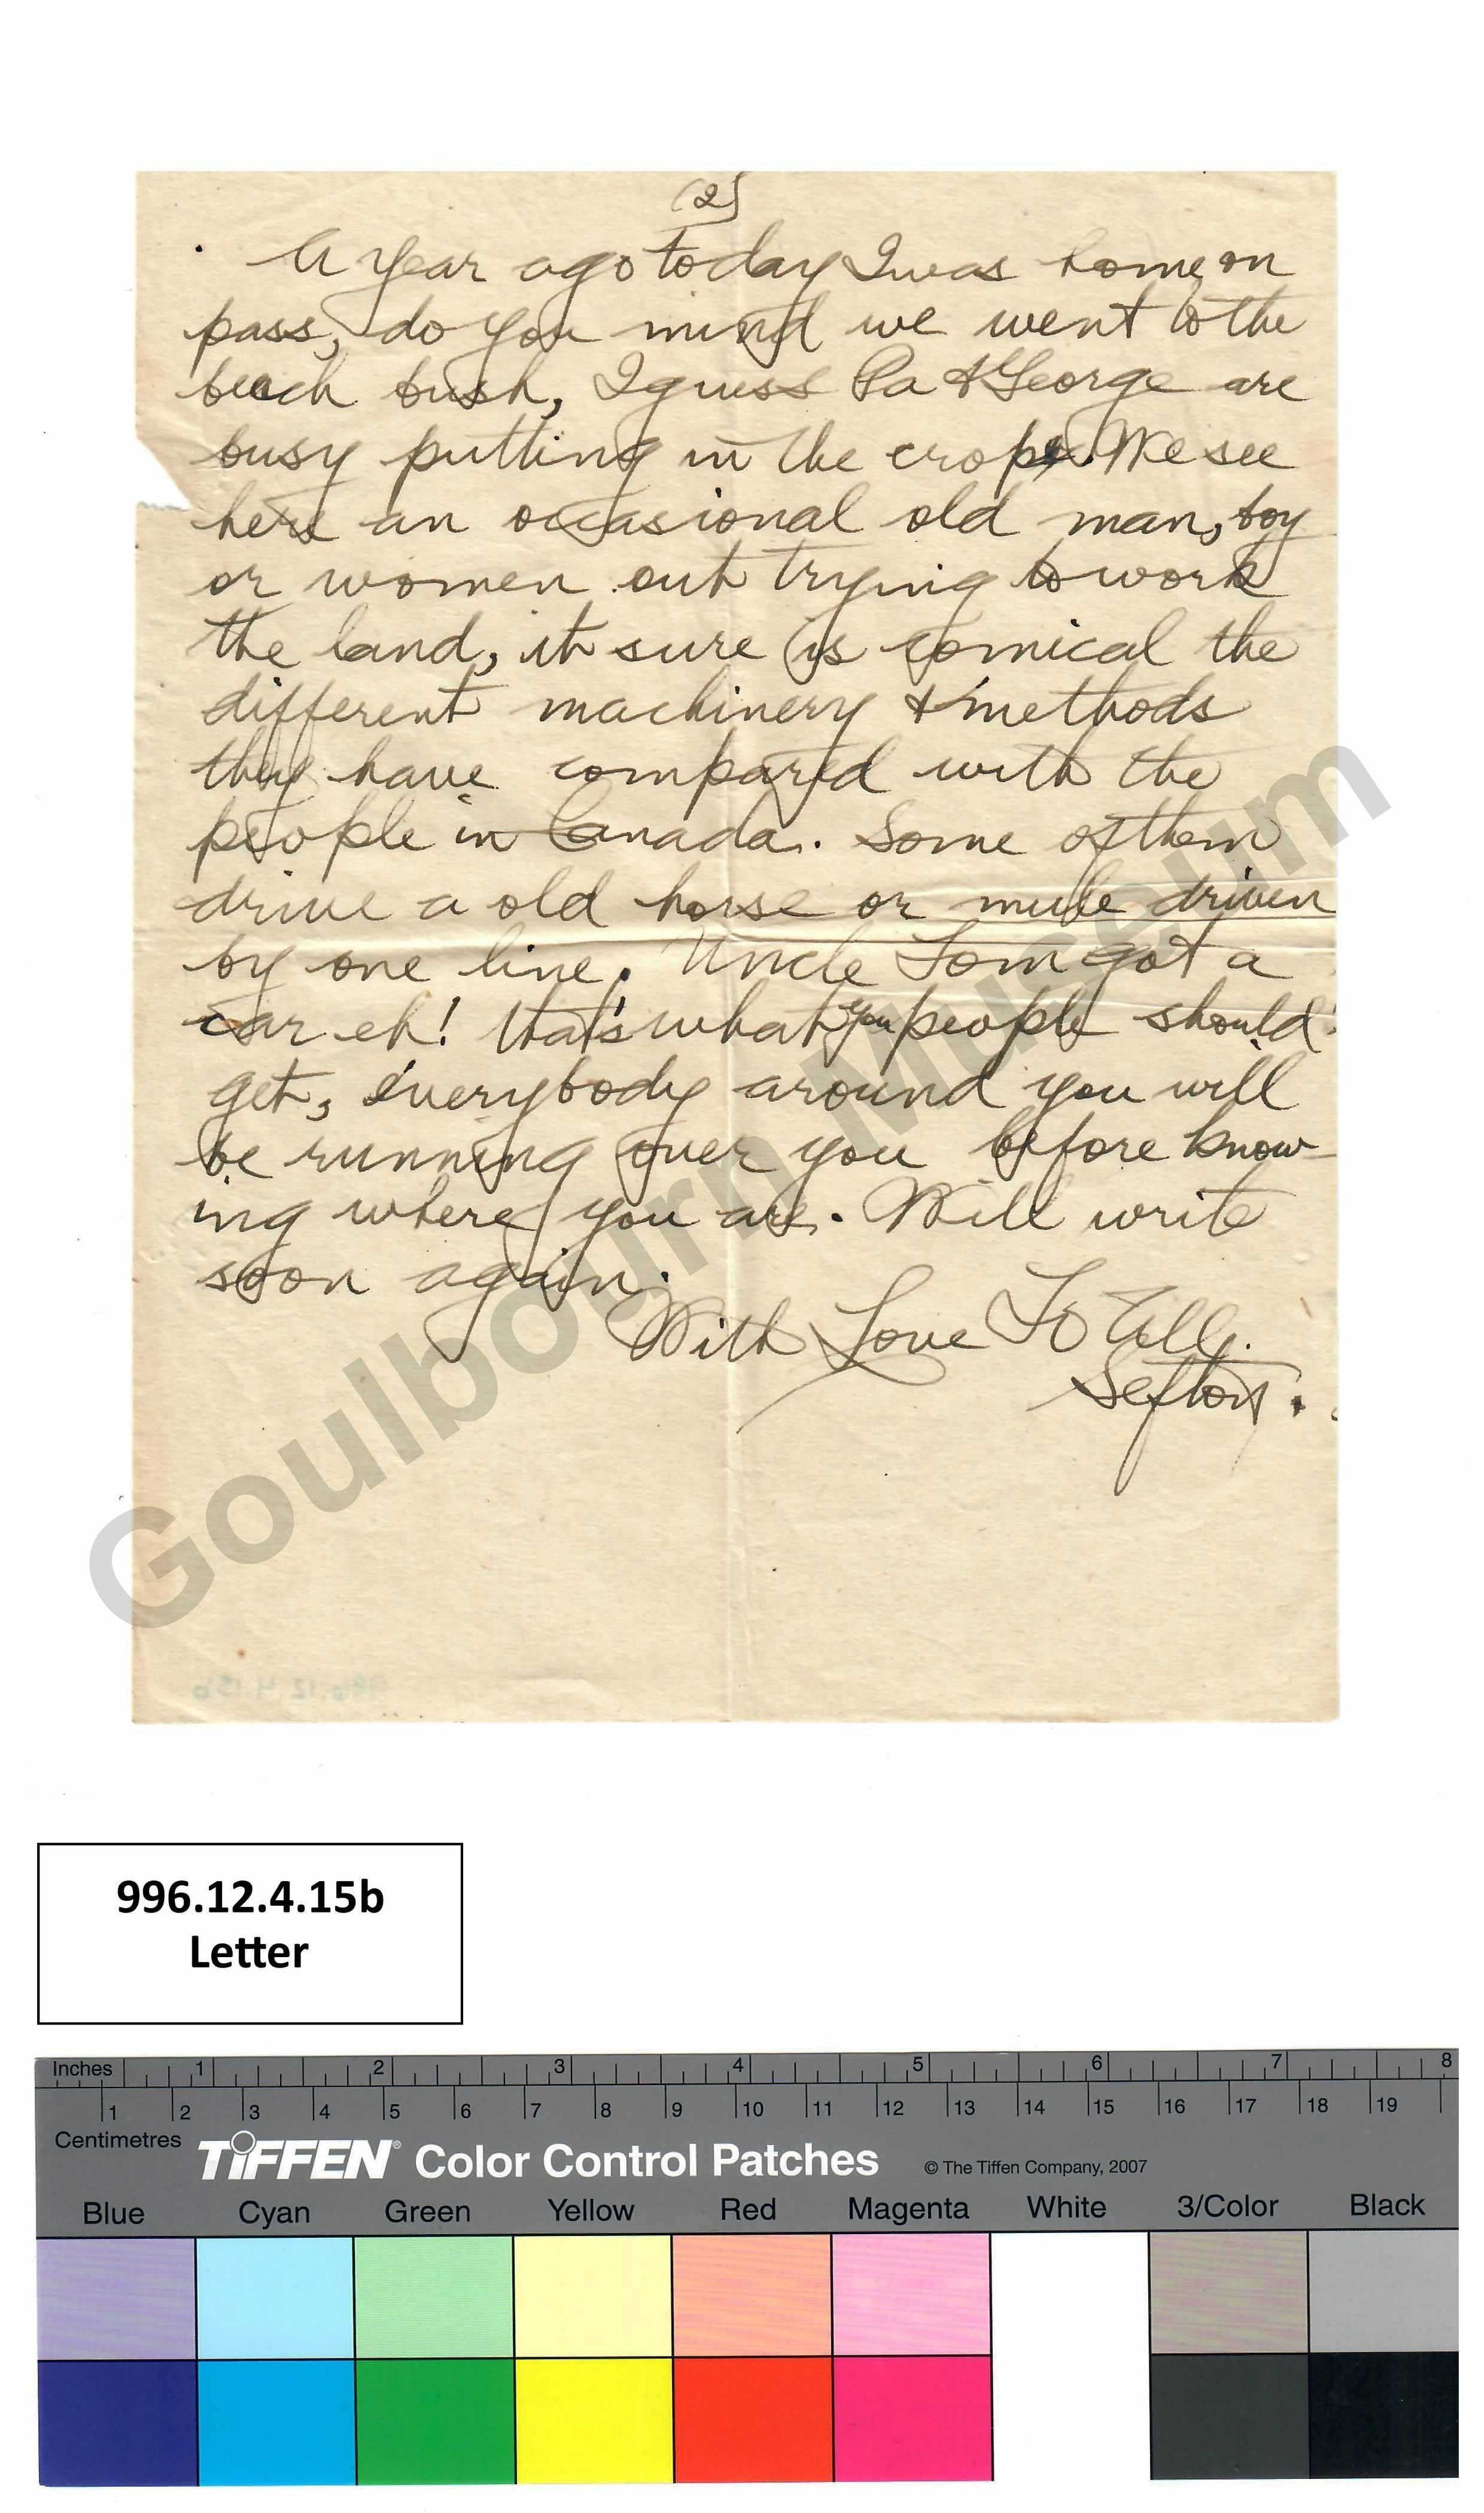 (2)
A year ago today I was home on
pass, do you mind we went to the
beach bush, I guess Pa & George are
busy putting in the crops. We see
here an occasional old man, boy
or women out trying to work
the land, it sure is comical the
different machinery & methods
they have compared with the
people in Canada. Some of them
drive a old horse or mule driven
by one line. Uncle Tom got a
car eh! that's what you people should
get, everybody around you will
be running over you before know-
ing where you are. Will write
soon again.
With Love To All.
Sefton.
Goulbourn Museum
996.12.4.15b
996.12.4.15b
Letter
Inches 1 2 3 4 5 6 7 8
1 2 3 4 5 6 7 8 9 10 11 12 13 14 15 16 17 18 19
Centimetres
TIFFEN® Color Control Patches © The Tiffen Company, 2007
Blue Cyan Green Yellow Red Magenta White 3/Color Black